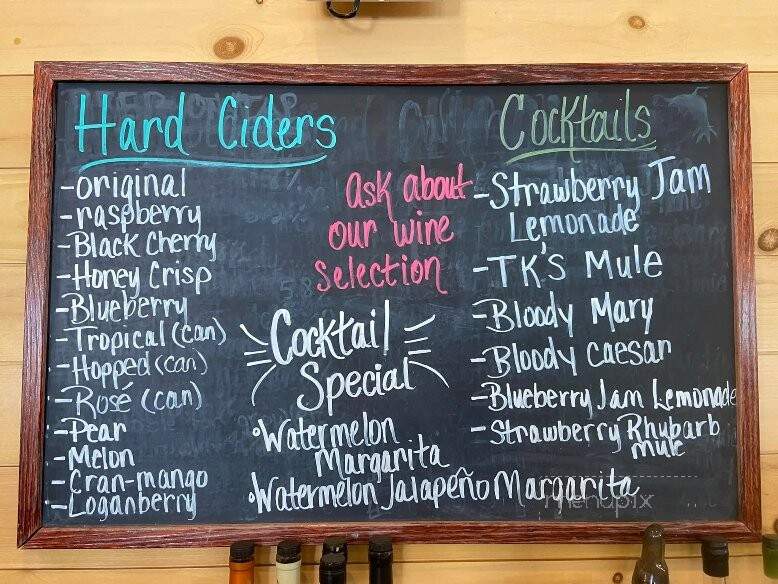 Hard Ciders
-original
-raspberry
-Black Cherry
-Honey Crisp
-Blueberry
-Tropical (can)
-Hopped (can)
-Rosé (can)
-Pear
-Melon
-Cran-mango
-Loganberry
Ask about
our wine
selection
Cocktail
Special
•Watermelon
Margarita
•Watermelon Jalapeño Margarita
Cocktails
-Strawberry Jam
Lemonade
-TK's Mule
-Bloody Mary
-Bloody Caesar
-Blueberry Jam Lemonade
-Strawberry Rhubarb
mule
menupix